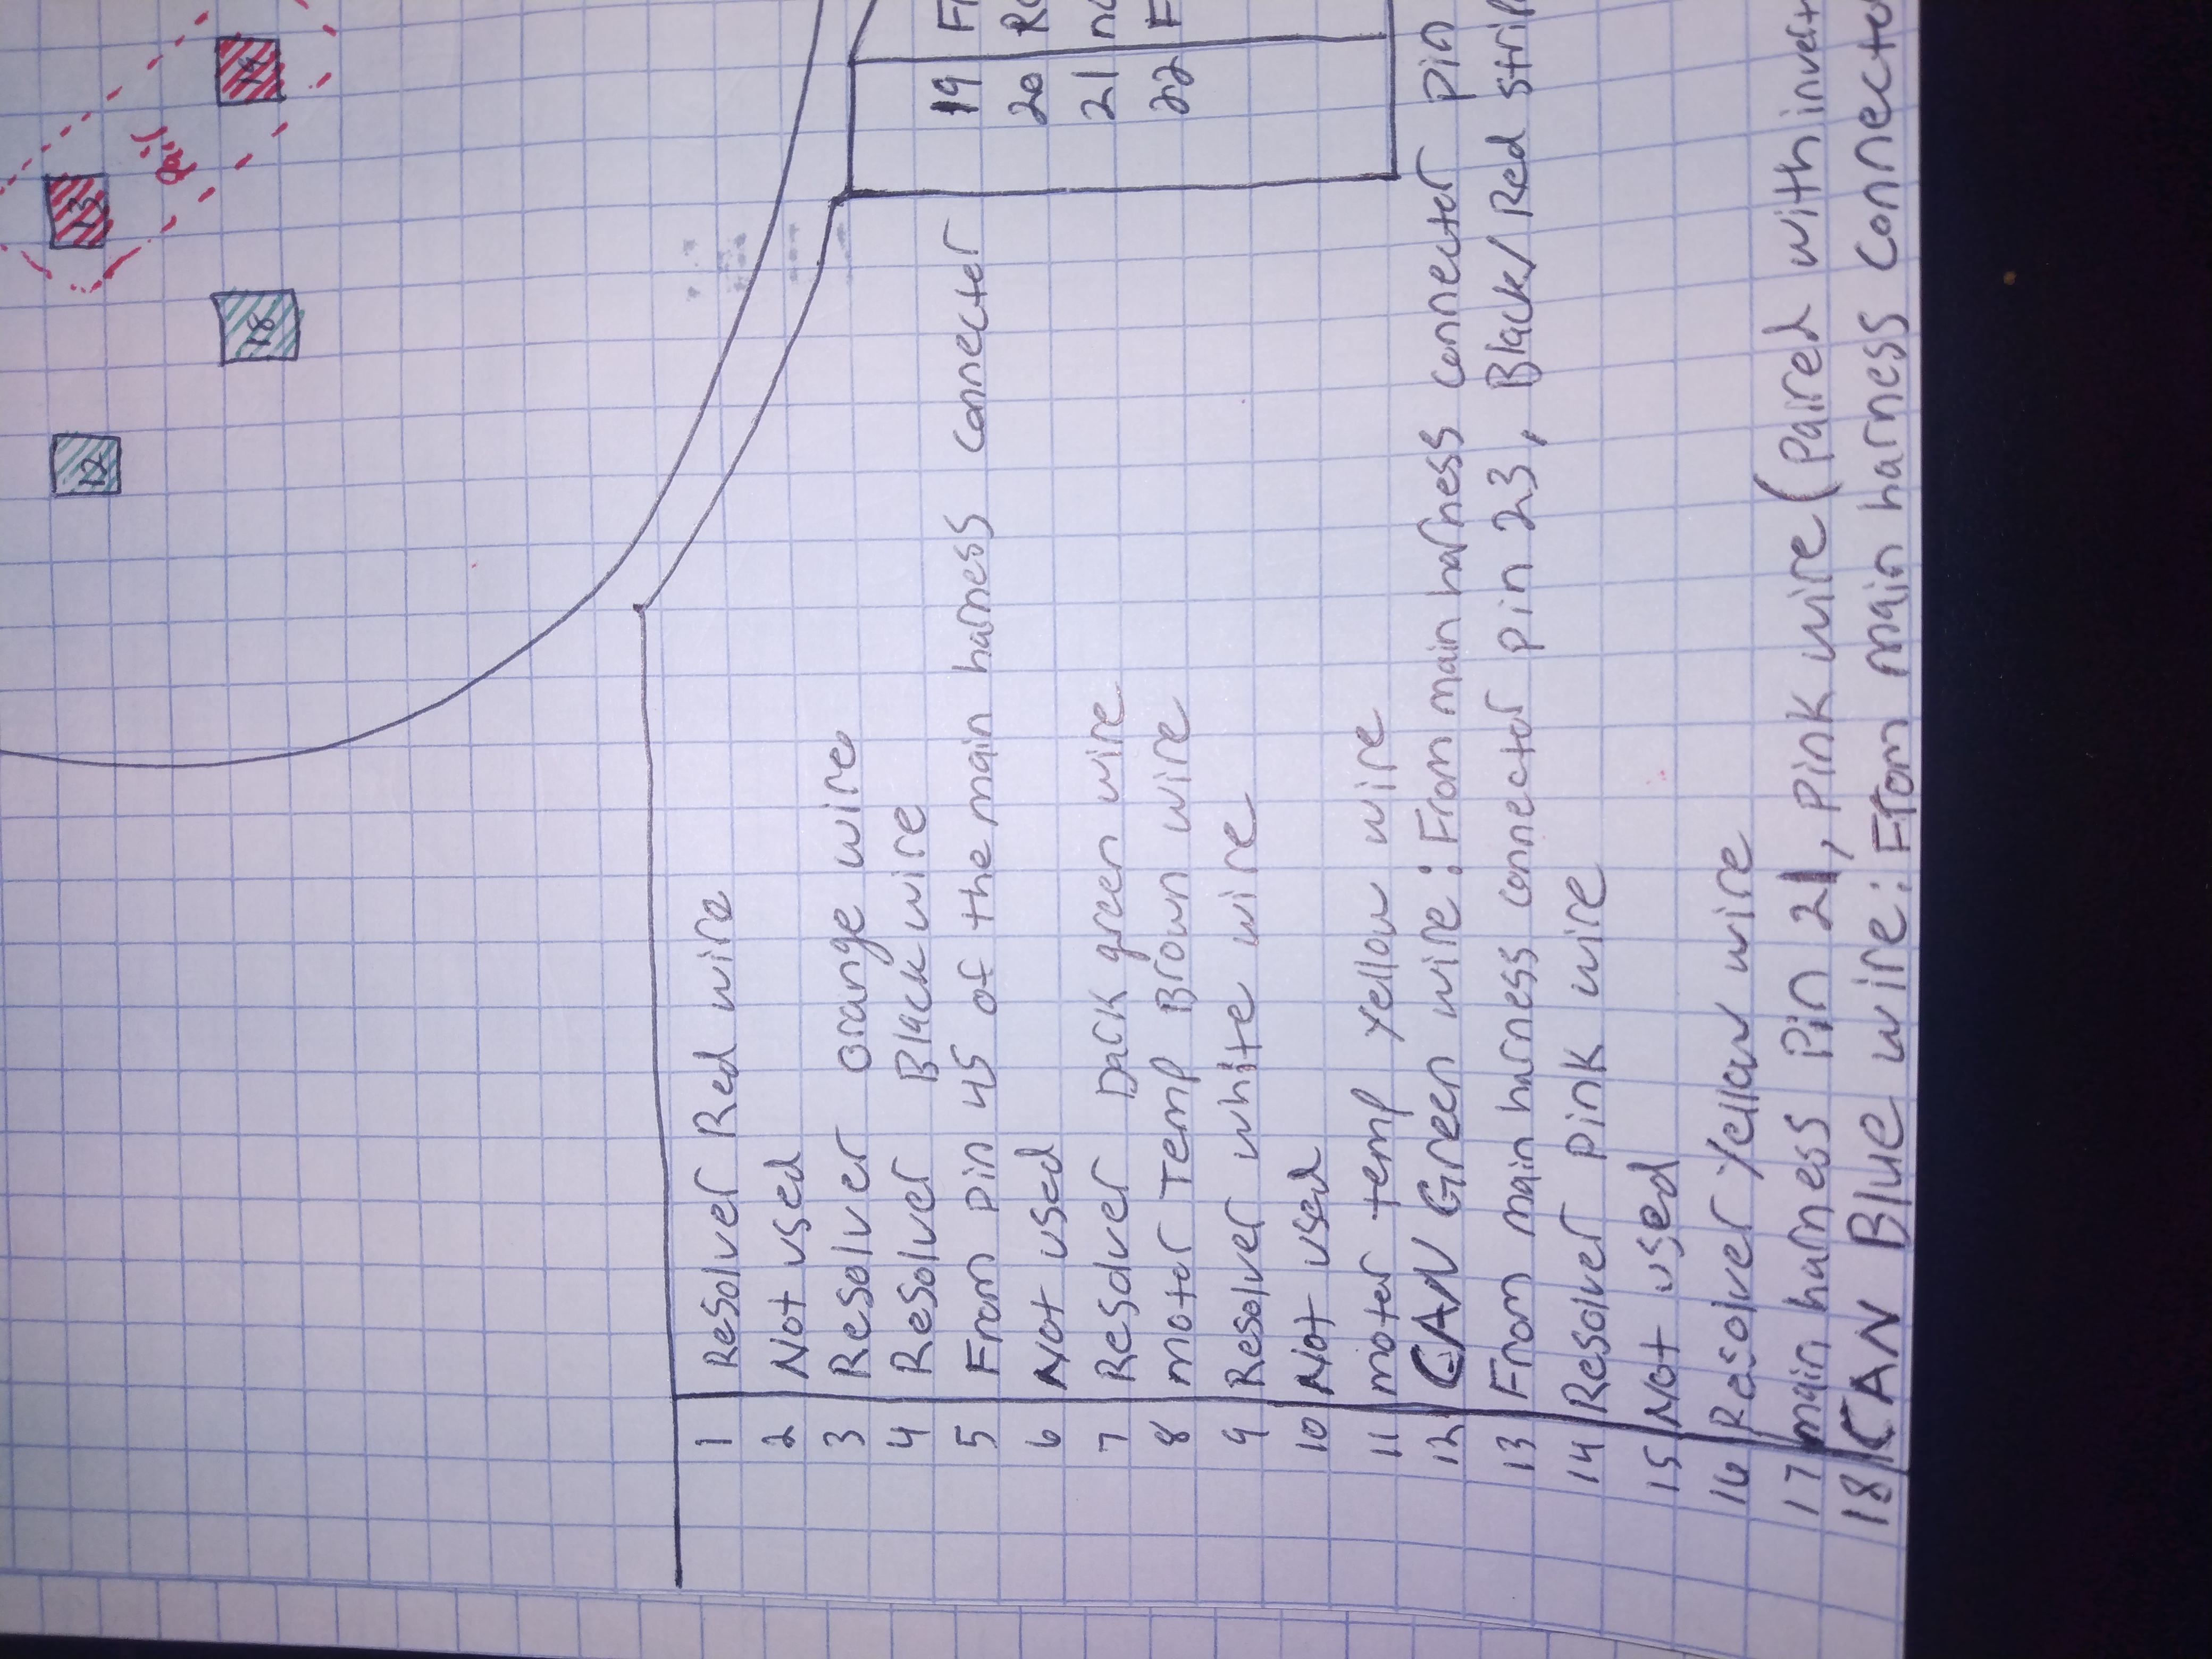 13
19
Pair
12
18
1 Resolver Red wire
2 Not used
3 Resolver orange wire
4 Resolver Black wire
5 From pin 45 of the main harness connecter
6 Not used
7 Resolver Dark green wire
8 motor Temp Brown wire
9 Resolver white wire
10 Not used
11 motor temp Yellow wire
12 CAN Green wire: From main harness connector pin
13 From main harness connector pin 23, Black/Red
14 Resolver pink wire
15 Not used
16 Resolver Yellow wire
17 main harness Pin 21, pink wire (Paired with
18 CAN Blue wire: From main harness
19
20
21
22